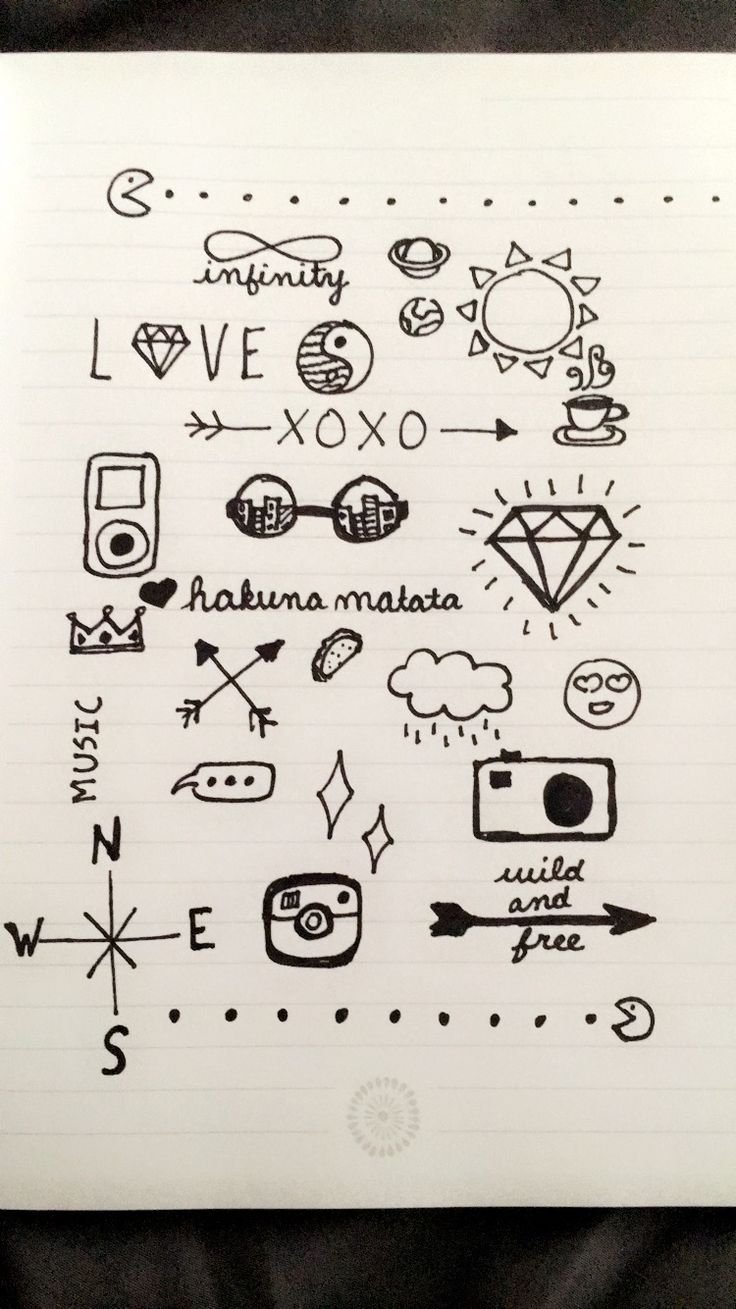 infinity
L VE
XOXO
hakuna matata
MUSIC
N
W E
S
wild
and
free